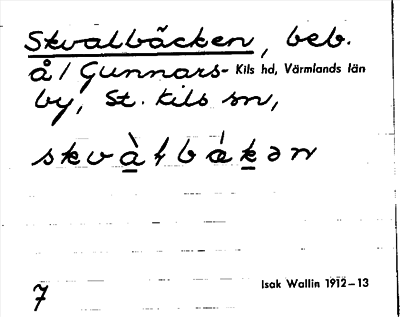 Skvalbäcken, beb.
å / Gunnars- Kils hd, Värmlands län
by, St. Kils sn,
skvàłbákən
7 Isak Wallin 1912–13